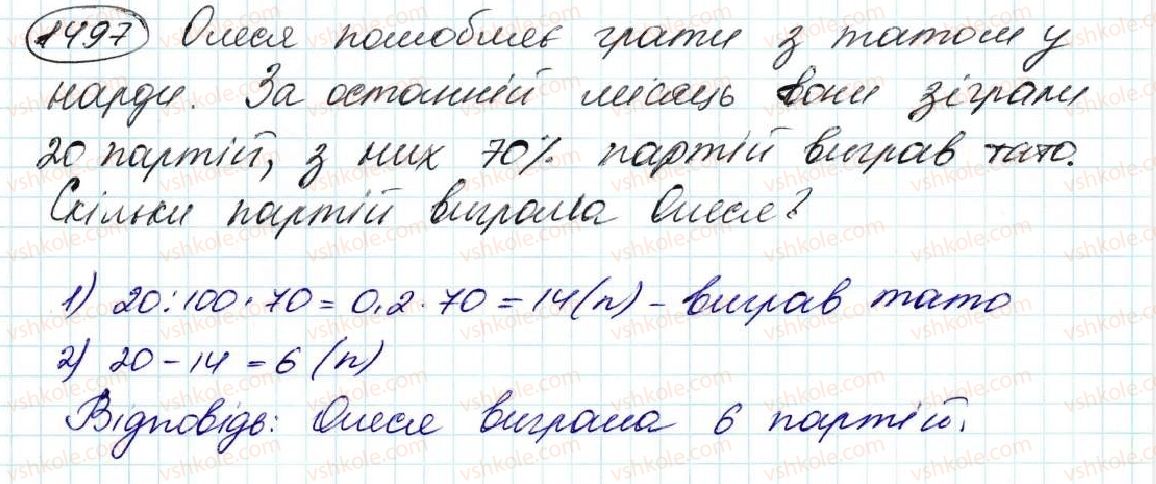 1497 Олеся полюбляє грати з татом у
нарди. За останній місяць вони зіграли
20 партій, з них 70% партій виграв тато.
Скільки партій виграла Олеся?
1) 20:100·70=0,2·70=14(п) - виграв тато
2) 20-14=6 (п)
Відповідь: Олеся виграла 6 партій.